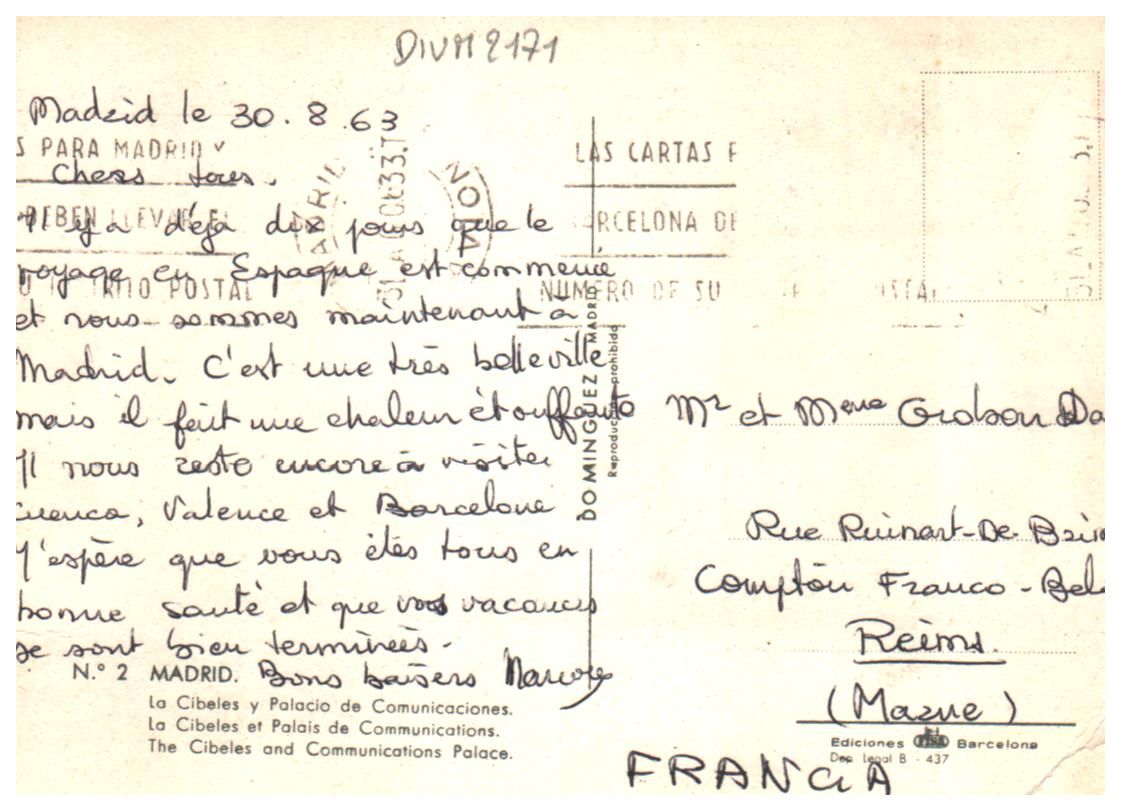 DIVM 2171
Madrid le 30.8.63
S PARA MADRID Y
DEBEN LLEVAR EL
POSTAL
LAS CARTAS
BARCELONA DE
NUMERO DE SU
Chers tous.
Il y a déja dix jours que le
voyage en Espagne est commencé
et nous sommes maintenant à
Madrid. C'est une très belle ville
mais il fait une chaleur étouffante
Il nous reste encore à visiter
Cuenca, Valence et Barcelone
J'espère que vous êtes tous en
bonne santé et que vos vacances
se sont bien terminées.
Bons baisers
N.º 2 MADRID.
La Cibeles y Palacio de Comunicaciones.
La Cibeles et Palais de Communications.
The Cibeles and Communications Palace.
DOMINGUEZ MADRID
Reproducción prohibida
Mr et Mme Da
Rue Ruinart-De-Brim
Comptoir Franco-Bel
Reims.
(Marne)
FRANCIA
Ediciones Barcelona
Dep. Legal B - 437